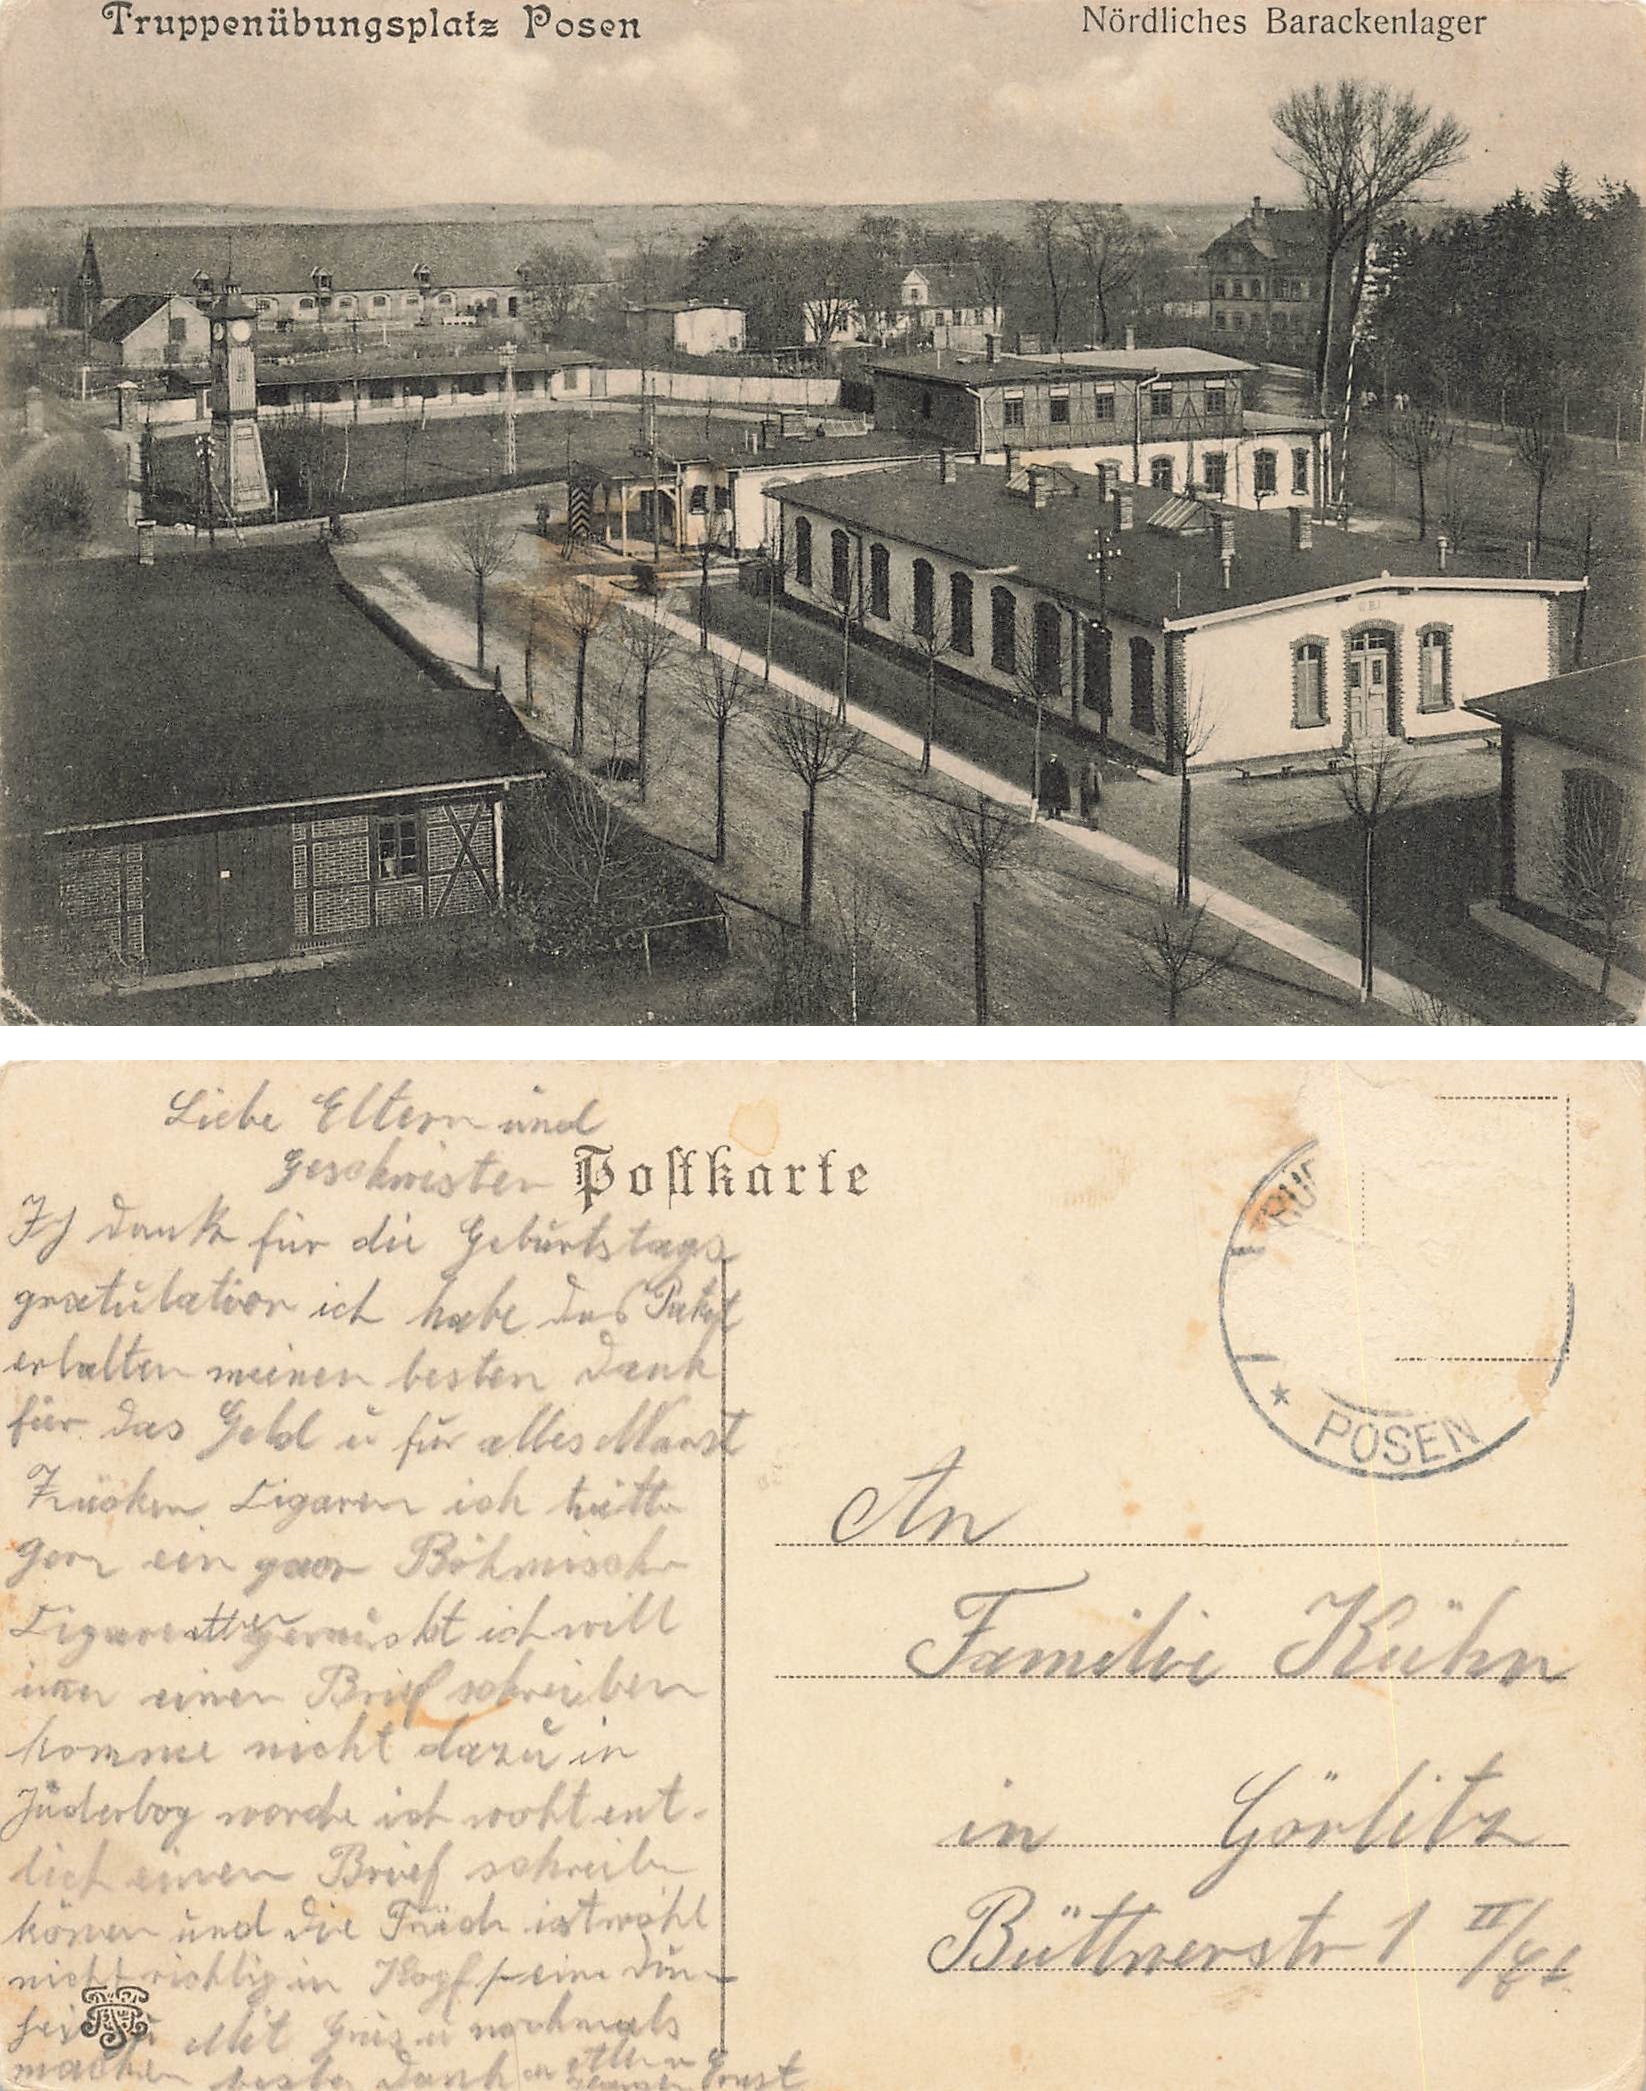 Truppenübungsplatz Posen
Nördliches Barackenlager
Liebe Eltern und
Geschwister
Postkarte
Ich dank für die Geburtstags
gratulation ich habe das Paket
erhalten meinen besten Dank
für das Geld u für alles Wurst
Zucker Zigaren ich hätte
gern ein paar Böhmisch
Zigaren geraucht ich will
imer einen Brief schreiben
komme nicht dazu in
Jüderbog werde ich woht ent-
lich einen Brief schreiben
könen und die ist wohl
nicht richtig in Kopf eine
Mit Grus u nochmals
machen besten Dank Ernst
TRUP
* POSEN
An
Familie Kühn
in Görlitz
Büttnerstr 1 II/